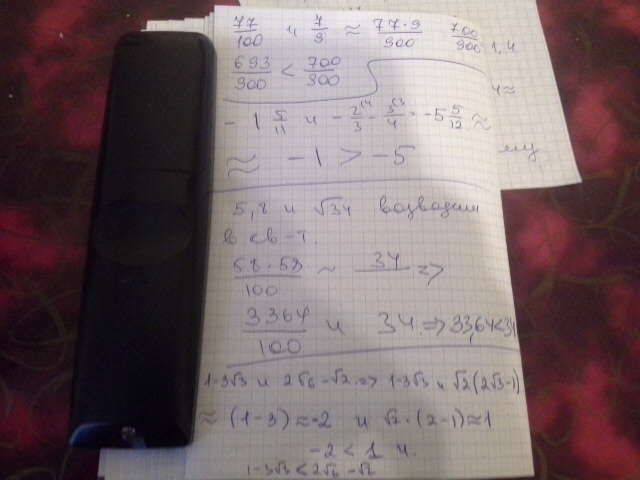 77/100 и 7/9 ≈ 77·9/900 700/900 1,4
693/900 < 700/900
ч≈
- 1 5/11 и - 2/3 - 3/4 = -5 5/12 ≈
≈ -1 > -5
5,8 и √34 возводим
в кв-т.
58·58/100 ~ 34 =>
3364/100 и 34. => 33,64<34
1-3√3 и 2√6-√2 => 1-3√3 и √2(2√3-1)
≈ (1-3) ≈ -2 и √2·(2-1)≈1
-2 < 1 и.
1-3√3 < 2√6-√2